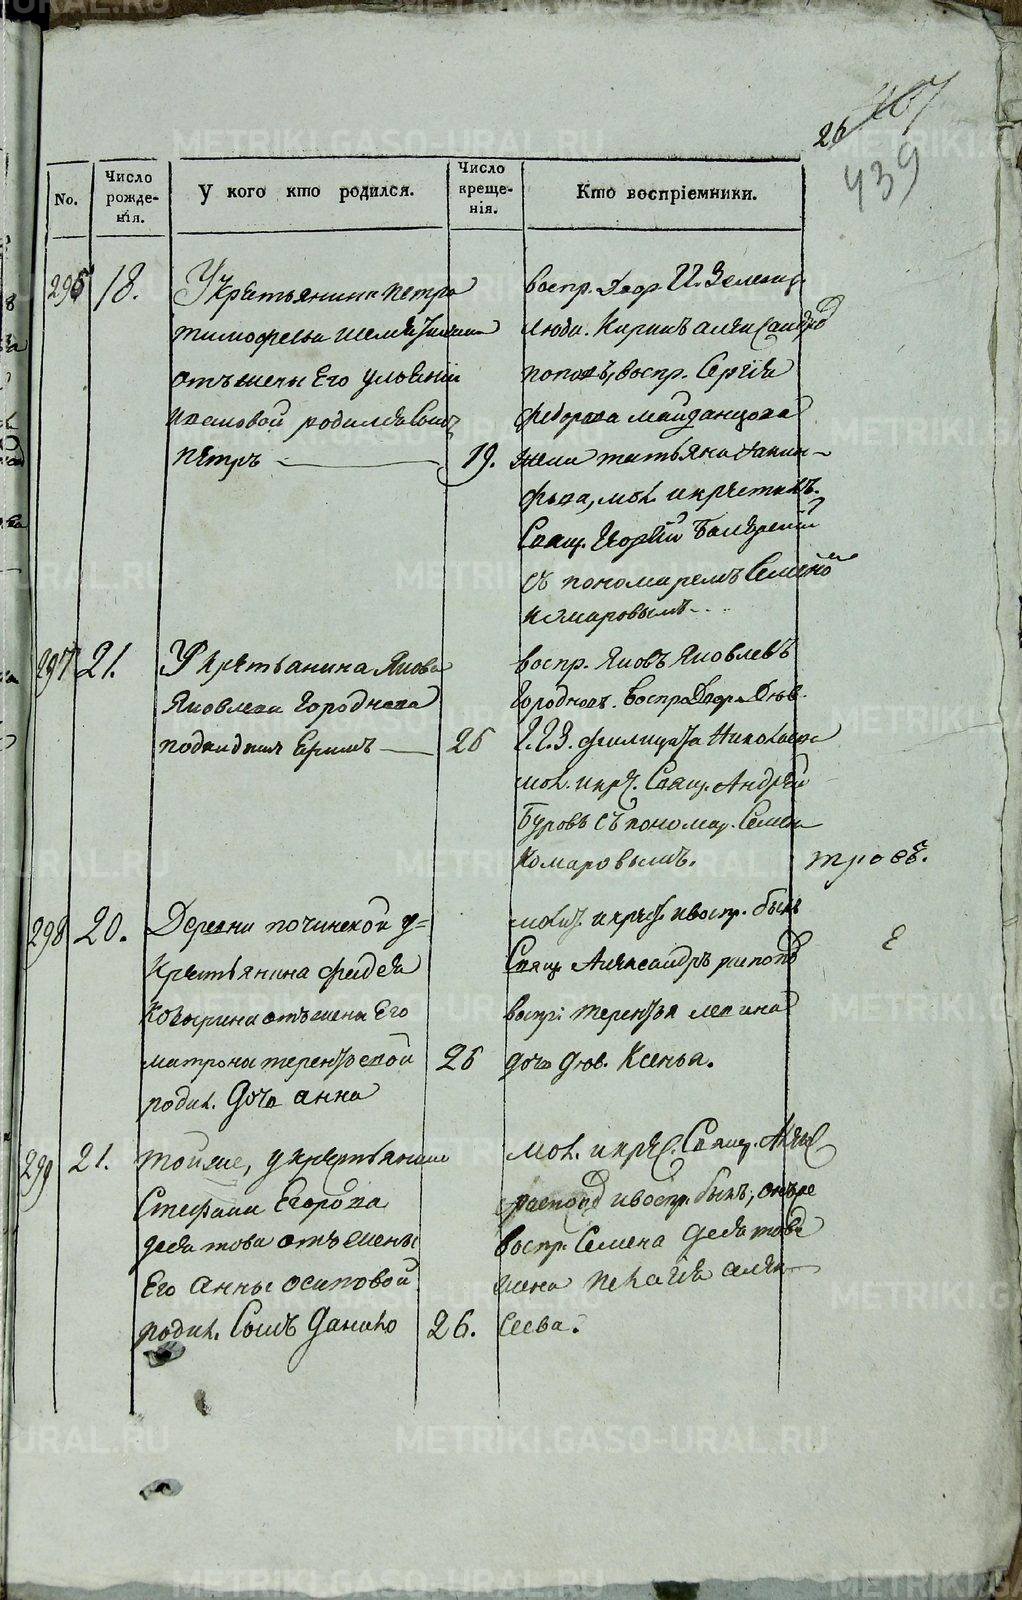 26 107
439
No.
Число рожденія.
У кого кто родился.
Число крещенія.
Кто воспріемники.
296 18.
У крестьянина петра
тимофеева
отъ жены Его
ивановой родился Сынъ
петръ 19.
воспр. двор.
люди. Кирилъ александ
поповъ, воспр. Сергѣя
федорова майданцова
жена татьяна
мол. и крестилъ.
Свящ. Георгій
съ пономаремъ Семено
комаровымъ
297 21.
У крестьанина Якова
Яковлева Городнова
подкидышъ Ермилъ 26
воспр. Яковъ Яковлевъ
Городновъ. воспр. Двор. Дѣв.
Г. Г. З. фелицата Николаева
мол. и кре. Свящ. Андрей
Буровъ съ пономар. Семен
Комаровымъ. троеб.
298 20.
Деревни починской у
крестьянина фадея
Козырина отъ жены Его
матроны терентьевой 26
родил. Дочь анна
мол. и крест. и воспр. былъ
Свящ. Александръ распопов
воспр. терентья лапина
дочь дѣв. Ксенья.
299 21.
той же, у крестьянина
Стефана Егорова
десятова отъ жены
Его анны осиповой
родил. Сынъ Данило 26.
мол. и кре. Свящ. Алек
распопов и воспр. былъ, онъ же
воспр. Семена десятова
жена пелагѣя алек
сеева.
METRIKI.GASO-URAL.RU